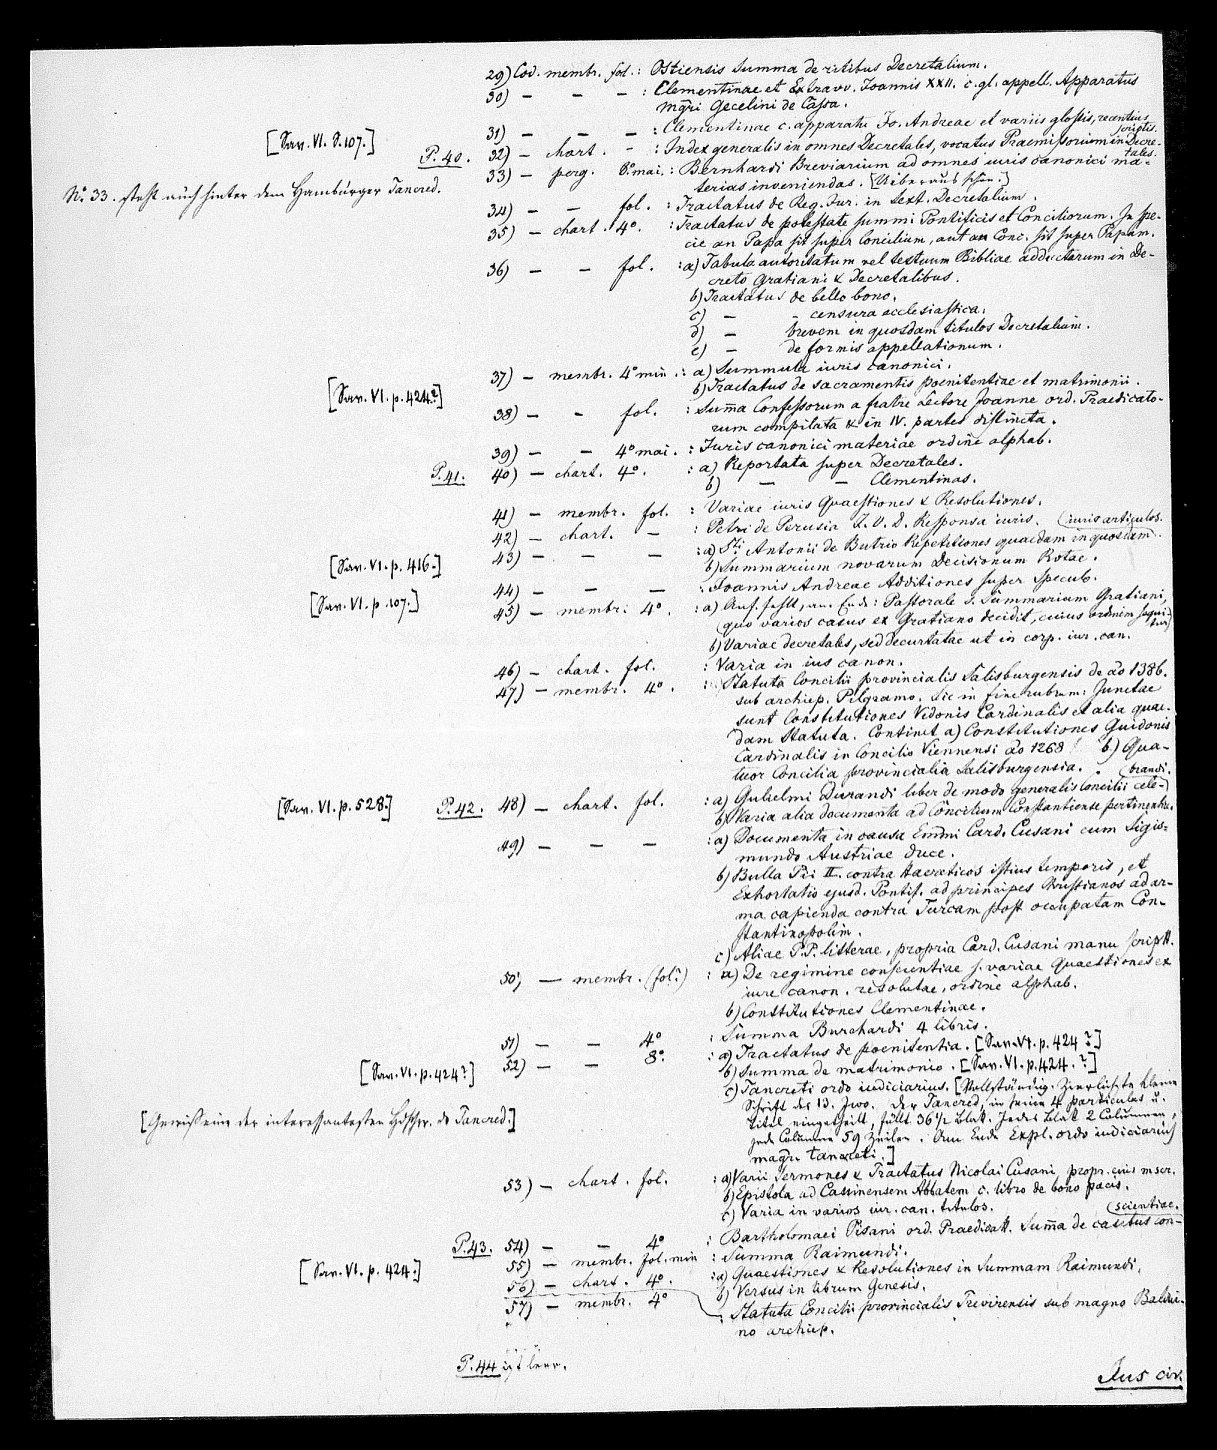 29) Cod. membr. fol.: Ostiensis Summa de titibus Decretalium.
30) — — — : Clementinae et Extravv. Joannis XXII. c. gl. appell. Apparatus
mgri Gecelini de Cassa.
31) — — — : Clementinae c. apparatu Jo. Andreae et variis glossis, recentius
scriptis.
[Sav. VI. S. 107.]
P. 40. 32) — chart. — : Index generalis in omnes Decretales, vocatus Praemissorium in Decre-
tales.
33) — perg. 8º. mai.: Bernhardi Breviarium ad omnes iuris canonici ma-
terias inveniendas. [Ueberaus schön.]
Nº 33. steht auch hinter dem Hamburger Tancred.
34) — — fol. : Tractatus de Reg. Jur. in Sext. Decretalium.
35) — chart. 4º. : Tractatus de potestate summi Pontificis et Conciliorum. In spe-
cie an Papa sit super Concilium, aut an Conc. sit super Papam.
36) — — fol. : a) Tabula autoritatum vel textuum Bibliae adductarum in De-
creto Gratiani & Decretalibus.
b) Tractatus de bello bono.
c) — - censura ecclesiastica.
d) — brevem in quosdam titulos Decretalium.
e) — de formis appellationum.
37) — membr. 4º min.: a) Summula iuris canonici.
b) Tractatus de sacramentis poenitentiae et matrimonii.
[Sav. VI. p. 424?]
38) — - fol. : Summa Confessorum a fratre Lectore Joanne ord. Praedicato-
rum compilata & in IV. partes distincta.
39) — — 4º mai. : Juris canonici materiae ordine alphab.
P. 41. 40) — chart. 4º. : a) Reportata super Decretales.
b) — — Clementinas.
41) — membr. fol. : Variae iuris Quaestiones & Resolutiones.
42) — chart. — : Petri de Perusia I. V. D. Responsa iuris.
(iuris articulos.
43) — — — : a) Sti Antonii de Butrio Repetitiones quaedam in quosdam
b) Summarium novarum Decisionum Rotae.
[Sav. VI. p. 416.]
44) — — — : Joannis Andreae Additiones super Specul.
[Sav. VI. p. 107.]
45) — membr. 4º. : a) Anf. fehlt, am Ende: Pastorale s. Summarium Gratiani,
quo varios casus ex Gratiano decidit, cuius ordinem sequi-
tur
b) Variae decretales, sed decurtatae ut in corp. iur. can.
46) — chart. fol. : Varia in ius canon.
47) — membr. 4º. : Statuta Concilii provincialis Salisburgensis de ao 1386.
sub archiep. Pilgramo. Sic in fine rubrum: Junctae
sunt Constitutiones Vidonis Cardinalis et alia quae-
dam Statuta. Continet a) Constitutiones Guidonis
Cardinalis in Concilio Viennensi ao 1268! b) Qua-
tuor Concilia provincialia Salisburgensia.
(brandi.
[Sav. VI. p. 528.]
P. 42. 48) — chart. fol. : a) Gulielmi Durandi liber de modo generalis Concilii cele-
b) Varia alia documenta ad Concilium Constantiense pertinentia.
49) — — — : a) Documenta in causa Emmi Card. Cusani cum Sigis-
mundo Austriae duce.
b) Bulla Pii II. contra Haereticos istius temporis, et
Exhortatio ejusd. Pontif. ad principes Christianos ad ar-
ma capienda contra Turcam post occupatam Con-
stantinopolim.
c) Aliae P.P. litterae, propria Card. Cusani manu scriptt.
50) — membr. (fol.) : a) De regimine conscientiae s. variae Quaestiones ex
iure canon. resolutae, ordine alphab.
b) Constitutiones Clementinae.
51) — — 4º : Summa Burchardi 4 libris.
52) — — 8º. : a) Tractatus de poenitentia. [Sav. VI. p. 424?]
b) Summa de matrimonio. [Sav. VI. p. 424.?]
[Sav. VI. p. 424?]
c) Tancreti ordo iudiciarius. [Vollständig. Zierlichste kleine
Schrift des 13. Jhd. Der Tancred, in seine 4 particulas u.
Titel eingetheilt, füllt 36 1/2 Blatt. Jedes Blatt 2 Columnen,
jede Columne 59 Zeilen. Am Ende Expl. ordo iudiciarius
magri tancreti.]
[Gewiß eine der interessantesten Hdschr. des Tancred.]
53) — chart. fol. : a) Varii Sermones & Tractatus Nicolai Cusani, propr. eius mscr.
b) Epistola ad Cassinensem Abbatem c. libro de bono pacis.
c) Varia in varios iur. can. titulos.
(scientiae.
P. 43. 54) — — 4º : Bartholomaei Pisani ord. Praedicatt. Summa de casibus con-
55) — membr. fol. min : Summa Raimundi.
[Sav. VI. p. 424.]
56) — chart. 4º. : a) Quaestiones & Resolutiones in Summam Raimundi.
b) Versus in librum Genesis.
57) — membr. 4º : Statuta Concilii provincialis Trevirensis sub magno Baldui-
no archiep.
P. 44 ist leer.
Jus civ.